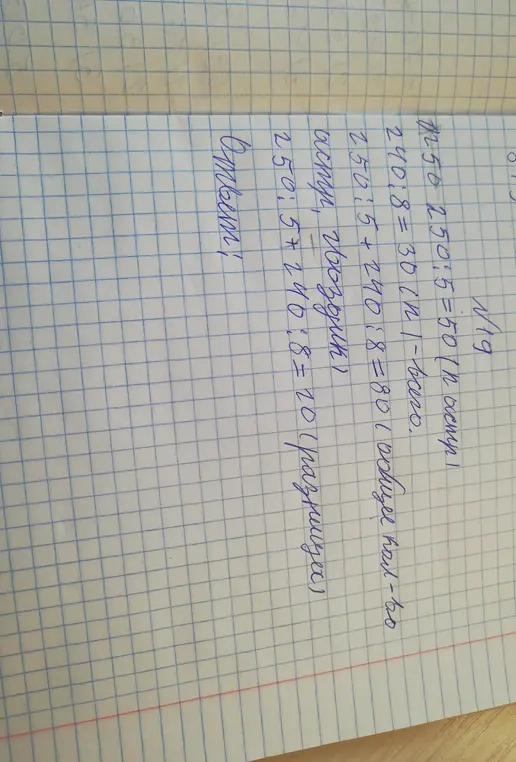 N19
250:5=50 (п астр)
240:8=30 (п)-васо.
250:5+240:8=80 (общее кол-во
астр, гвоздик)
250:5+240:8=20 (разница)
Ответ: